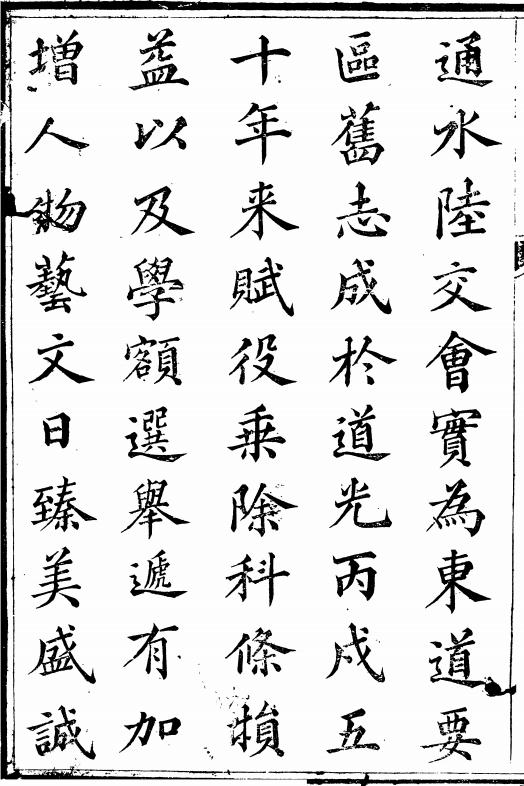 通水陸交會實為東道要
區舊志成於道光丙戌五
十年来賦役乗除科條損
益以及學額選舉遞有加
增人物藝文日臻美盛誠